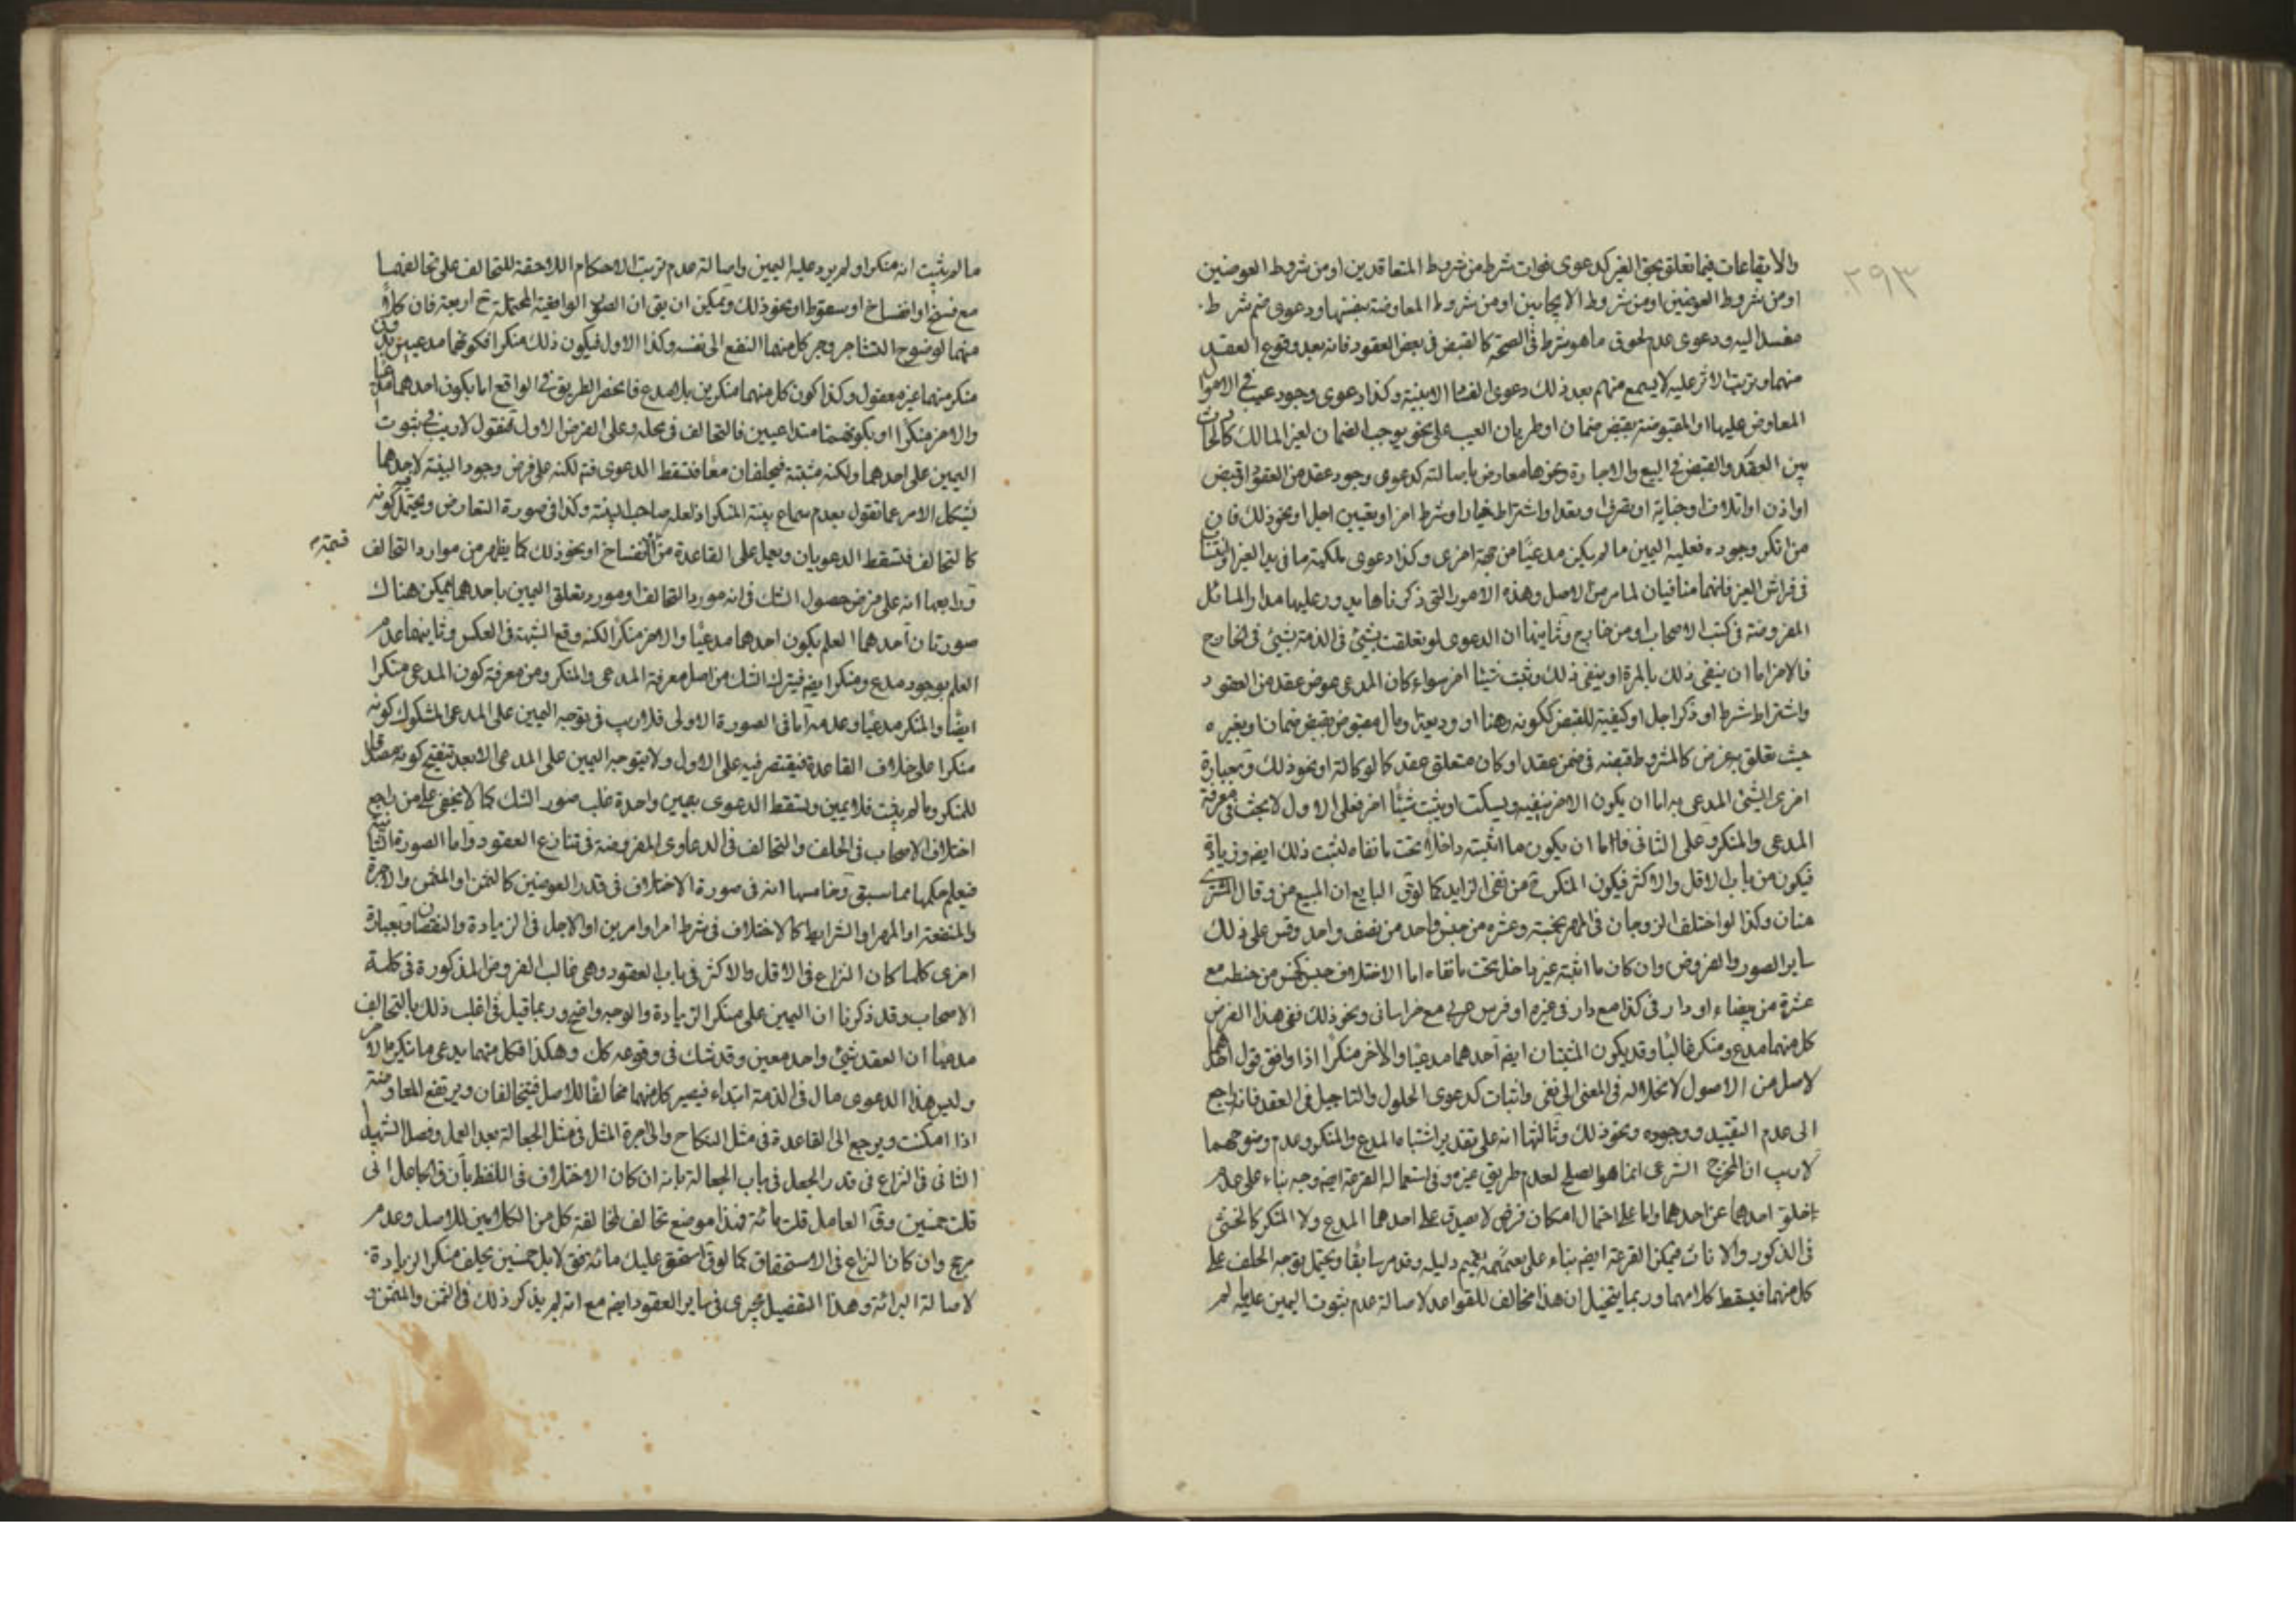 ٢٩٣
والايقاعات فيما تعلق بحق الغير كدعوى فوات شرط من شروط المتعاقدين او من شروط العوضين
او من شروط العوضين او من شروط الايجابين او من شروط المعاوضة بنفسها ودعوى ضم شرط
مفسد اليه ودعوى عدم لحوق ما هو شرط في الصحة كالقبض في بعض العقود فانه بعد وقوع العقد
منهما وترتب الاثر عليه لا يسمع منهم بعد ذلك دعوى الفساد الا ببينة وكذا دعوى وجود عيب في الاموال
المعاوض عليها او المقبوضة بقبض ضمان او طريان العيب على نحو يوجب الضمان لغير المالك كالحادث
بين العقد والقبض في البيع والاجارة ونحوها معارض باصالته كدعوى وجود عقد من العقود او قبض
او اذن او اتلاف او جناية او تصرف او نقد او اشتراط خيار او شرط اخر او تعيين اجل او نحو ذلك فان
من انكر وجوده فعليه اليمين ما لم يكن مدعيا من جهة اخرى وكذا دعوى ملكية ما في يد الغير او
في فراش الغير فانهما منافيان لما مر من الاصل وهذه الامور التي ذكرناها يدور عليها مدار المسائل
المفروضة في كتب الاصحاب او من خارج وثانيها ان الدعوى لو تعلقت بشيئ في الذمة بشيئ في الخارج
فالاخر اما ان ينفي ذلك بالمرة او ينفي ذلك ويثبت شيئا اخر سواء كان المدعى عوض عقد من العقود
واشتراط شرط او ذكر اجل او كيفية للقبض ككونه رهنا او وديعة او مال مقبوض بقبض ضمان او بغيره
حيث تعلق به غرض كالمشروط قبضه في ضمن عقد او كان متعلق عقد كالوكالة او نحو ذلك وبعبارة
اخرى الشيئ المدعى به اما ان يكون الاخر ينفيه ويسكت او يثبت شيئا اخر فعلى الاول لا بحث في معرفة
المدعي والمنكر وعلى الثاني فاما ان يكون ما اثبته داخلا تحت ما نفاه ليثبت ذلك ايضا وزيادة
فيكون من باب الاقل والاكثر فيكون المنكر ح من نفى الزايد كما لو ق البايع ان المبيع من وقال المشتري
منان وكذا لو اختلف الزوجان في المهر بخمسة وعشرة من جنس واحد من نصف واحد وقس على ذلك
ساير الصور والفروض وان كان ما اثبته غير داخل تحت ما نفاه اما الاختلاف جنس كخمس من حنطة مع
عشرة من بيضاء او دار في كذا مع دار في غيره او فرس عربي مع خراساني ونحو ذلك ففي هذا الفرض
كل منهما مدع ومنكر غالبا وقد يكون المثبتان ايضا احدهما مدعيا والاخر منكرا اذا وافق قول احدهما
لاصل من الاصول لانحلاله في المعنى الى نفي واثبات كدعوى الحلول والتاجيل في العقد فانه راجع
الى عدم التقييد ووجوده ونحو ذلك وثالثها انه على تقدير اشتباه المدع والمنكر وعدم وضوحهما
لا ريب ان المخرج الشرعي انما هو الصلح لعدم طريق غيره وفي استعمال القرعة ايضا وجه بناء على عدم
خلو احدهما عن احدهما واما على احتمال امكان فرض لا يصدق على احدهما المدع ولا المنكر كالخنثى
في الذكور والاناث فيمكن القرعة ايضا بناء على تعميم دليله وقد مر سابقا ويحتمل توجه الحلف على
كل منهما فيسقط كلامهما وربما يتخيل ان هذا مخالف للقواعد لاصالة عدم ثبوت اليمين عليها لم
ما لم يثبت انه منكر او لم يرد عليه اليمين واصالة عدم ترتب الاحكام اللاحقة للتحالف على تحالفهما
مع فسخ او انفساخ او سقوط او نحو ذلك ويمكن ان يق ان الصور الواقعية المحتملة ح اربعة فان كلا
منهما لوضوح التشاجر وجر كل منهما النفع الى نفسه وكذا الاول فيكون ذلك منكرا فكونهما مدعيين بدون
منكر منهما غير معقول وكذا كون كل منهما منكرين بلا مدع فانحصر الطريق في الواقع اما بكون احدهما مدعيا
والاخر منكرا او بكونهما متداعيين فالتحالف في محله وعلى الفرض الاول فنقول لا ريب في ثبوت
اليمين على احدهما ولكنه مشتبه فيحلفان معا فتسقط الدعوى فتم لكنه على فرض وجود البينة لاحدهما
يشكل الامر عما نقول بعدم سماع بينة المنكر اذ لعله صاحب البينة وكذا في صورة التعارض ويحتمل كونه
كالتحالف فتسقط الدعويان ويعمل على القاعدة من الانفساخ او نحو ذلك كما يظهر من موارد التحالف
ورابعها انه على فرض حصول الشك في انه مورد التحالف او مورد تعلق اليمين باحدهما يمكن هناك
صورتان احدهما العلم بكون احدهما مدعيا والاخر منكرا لكنه وقع الشبهة في العكس وثانيهما عدم
العلم بوجود مدع ومنكر ايضا فيترك الشك من اصل معرفة المدعي والمنكر ومن معرفة كون المدعي منكرا
ايضا والمنكر مدعيا وعدمه اما في الصورة الاولى فلا ريب في توجه اليمين على المدعى المشكوك كونه
منكرا على خلاف القاعدة فيقتصر فيه على الاول ولا يتوجه اليمين على المدعي الا بعد تنقيح كونه مصداقا
للمنكر وما لم يثبت فلا يمين وتسقط الدعوى بيمين واحدة غلب صور الشك كما لا يخفى على من راجع
اختلاف الاصحاب في الحلف والتحالف في الدعاوى المفروضة في تنازع العقود واما الصورة الثانية
فيعلم حكمها مما سبق وخامسها انه في صورة الاختلاف في قدر العوضين كالثمن او المثمن والاجرة
والمنفعة او المهر او الشرايط كالاختلاف في شرط امر او امرين او الاجل في الزيادة والنقصان وبعبارة
اخرى كلما كان النزاع في الاقل والاكثر في باب العقود وهي غالب الفروض المذكورة في كلمة
الاصحاب وقد ذكرنا ان اليمين على منكر الزيادة والوجه واضح وربما قيل في اغلب ذلك بالتحالف
مدعيا ان العقد شيئ واحد معين وقد شك في وقوعه كك وهكذا فكل منهما يدعي ما ينكره الاخر
وليس هذا الدعوى مال في الذمة ابتداء فيصير كل منهما مخالفا للاصل فيتحالفان ويرتفع المعاوضة
اذا امكنت ويرجع الى القاعدة في مثل النكاح والى اجرة المثل في مثل الجعالة بعد العمل وفصل الشهيد
الثاني في النزاع في قدر الجعل في باب الجعالة بانه ان كان الاختلاف في اللفظ بان ق الجاعل اني
قلت خمسين وق العامل قلت مائة فهذا موضع تحالف لمخالفة كل من الكلامين للاصل وعدم
مرجح وان كان النزاع في الاستحقاق كما لو ق استحق عليك مائة فق لا بل خمسين يحلف منكر الزيادة
لاصالة البرائة وهذا التفصيل يجرى في ساير العقود ايضا مع انه لم يذكر ذلك في الثمن والمثمن و